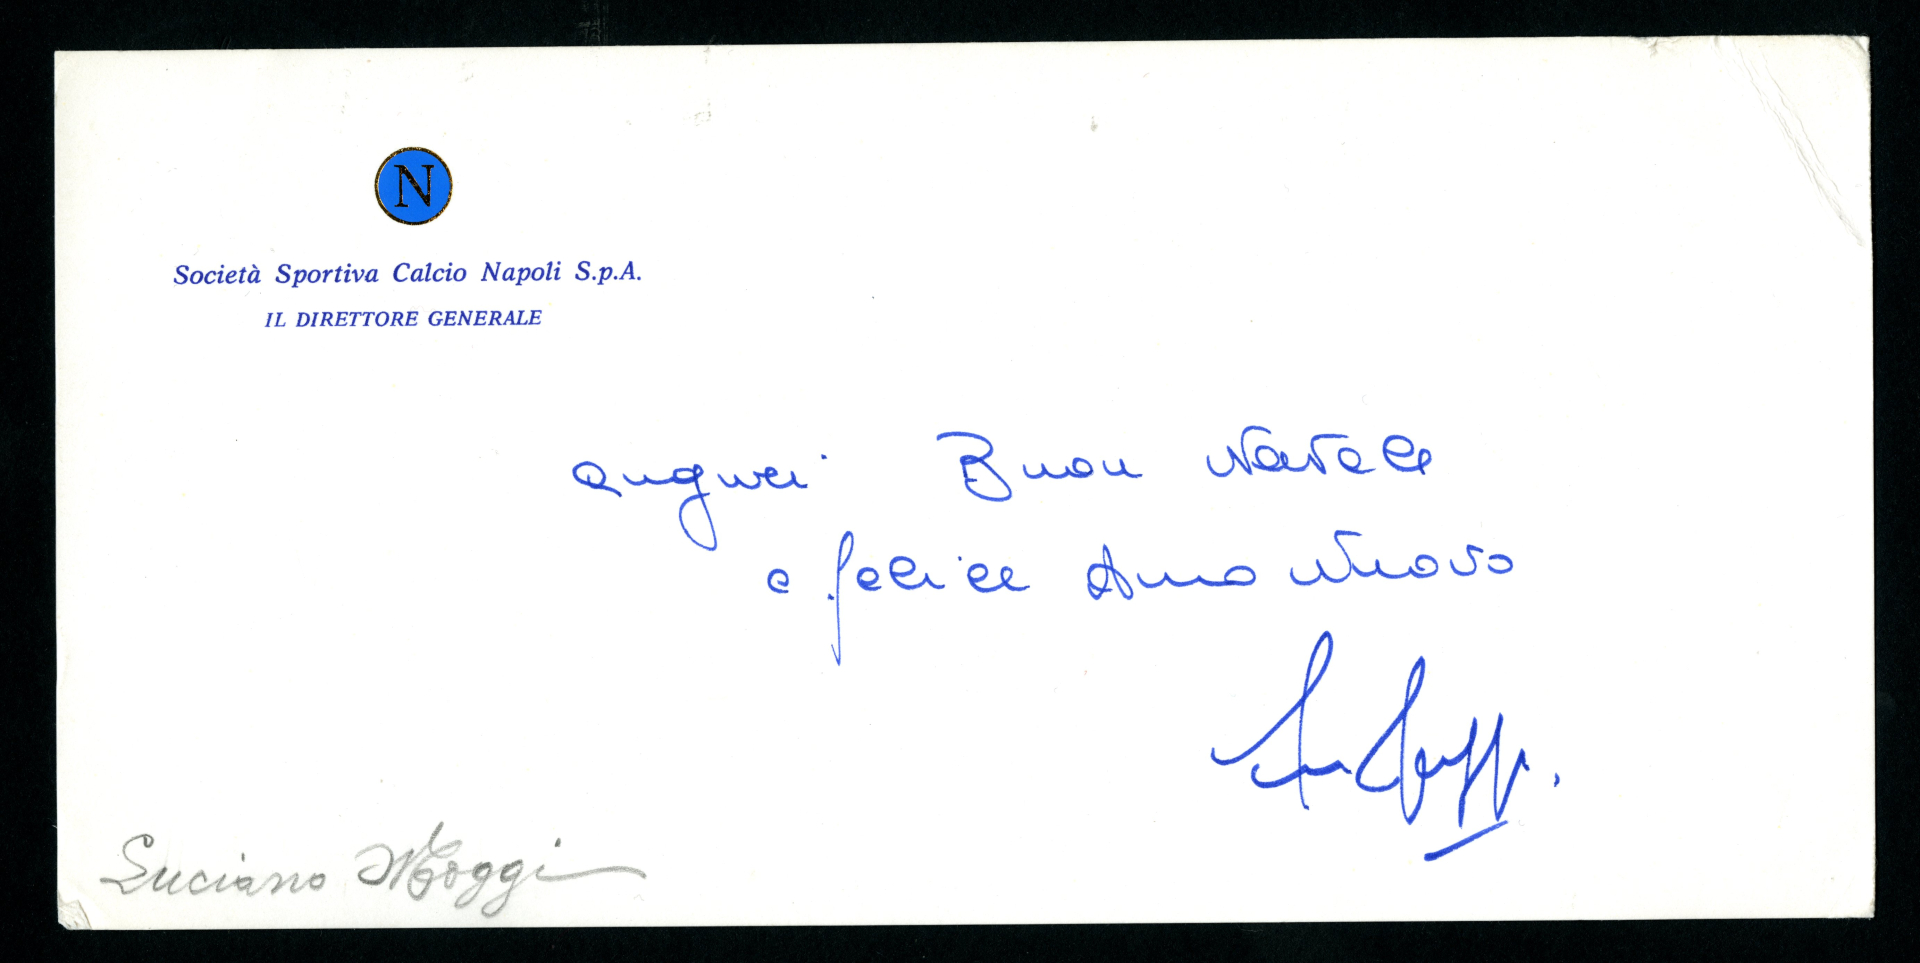 N
Società Sportiva Calcio Napoli S.p.A.
IL DIRETTORE GENERALE
auguri Buon Natale
e felice Anno Nuovo
Luciano Moggi